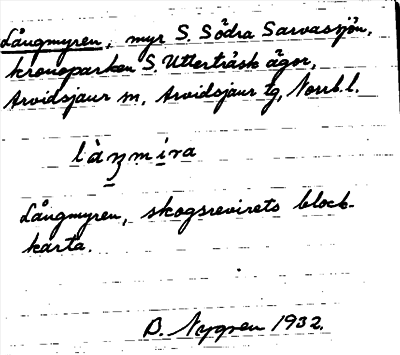 Långmyren, myr S. Södra Sarvassjön,
kronoparken S. Utterträsk ägor,
Arvidsjaur sn, Arvidsjaur tg, Norrb. l.
Långmyren, skogsrevirets block-
karta.
B. Nygren 1932.